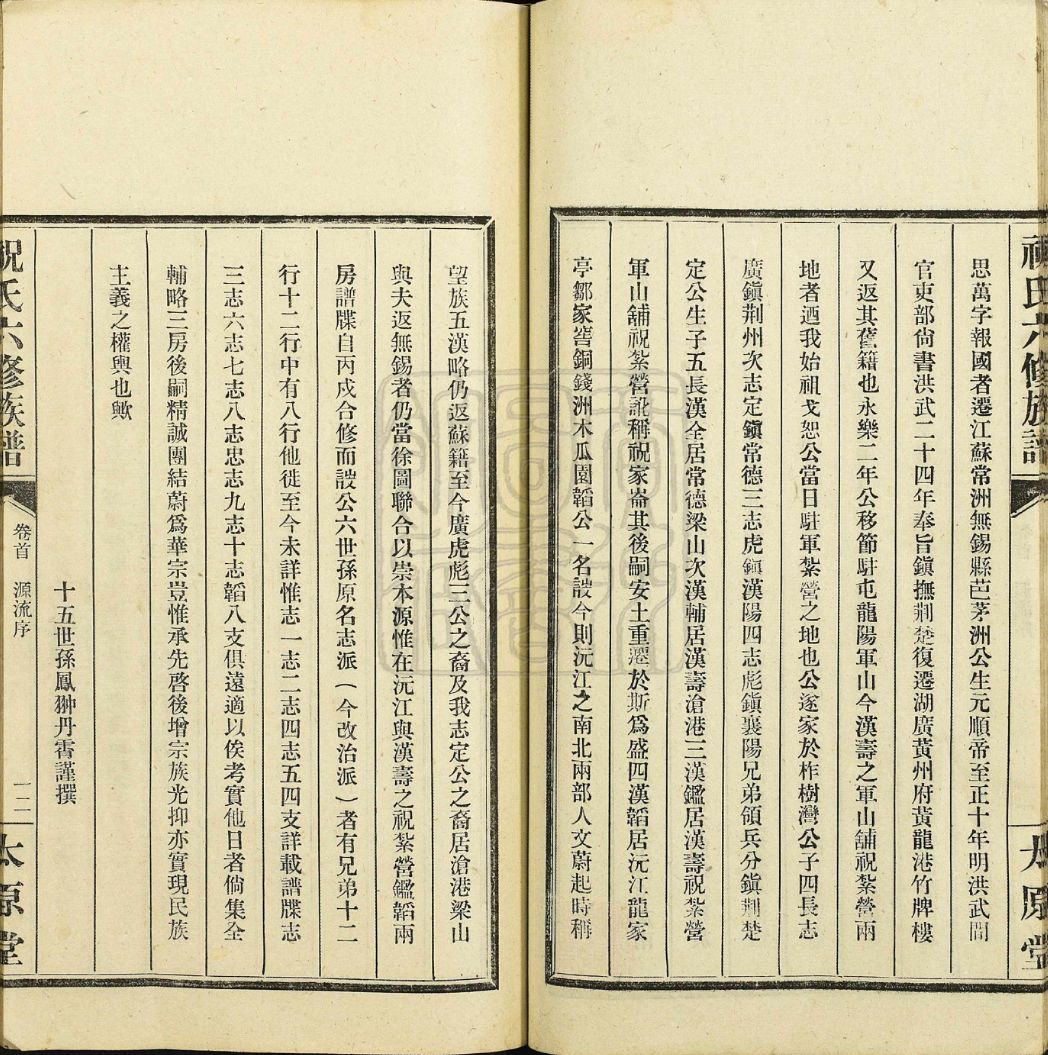 祝氏六修族譜
太原堂
思萬字報國者遷江蘇常洲無錫縣芭茅洲公生元順帝至正十年明洪武間
官吏部尚書洪武二十四年奉旨鎮撫荆楚復遷湖廣黃州府黃龍港竹牌樓
又返其舊籍也永樂二年公移節駐屯龍陽軍山今漢壽之軍山舖祝紮營兩
地者迺我始祖戈恕公當日駐軍紮營之地也公遂家於柞樹灣公子四長志
廣鎭荆州次志定鎭常德三志虎鎭漢陽四志彪鎭襄陽兄弟領兵分鎭荆楚
定公生子五長漢全居常德梁山次漢輔居漢壽滄港三漢鑑居漢壽祝紮營
軍山舖祝紮營訛稱祝家崙其後嗣安土重遷於斯爲盛四漢韜居沅江龍家
亭鄒家窖銅錢洲木瓜園韜公一名諁今則沅江之南北兩部人文蔚起時稱
望族五漢略仍返蘇籍至今廣虎彪三公之裔及我志定公之裔居滄港梁山
與夫返無錫者仍當徐圖聯合以崇本源惟在沅江與漢壽之祝紮營鑑韜兩
房譜牒自丙戌合修而諁公六世孫原名志派（今改治派）者有兄弟十二
行十二行中有八行他徙至今未詳惟志一志二志四志五四支詳載譜牒志
三志六志七志八志忠志九志十志韜八支俱遠適以俟考實他日者倘集全
輔略三房後嗣精誠團結蔚爲華宗豈惟承先啓後增宗族光抑亦實現民族
主義之權輿也歟
十五世孫鳳翀丹霄謹撰
祝氏六修族譜
卷首 源流序
一二
太原堂